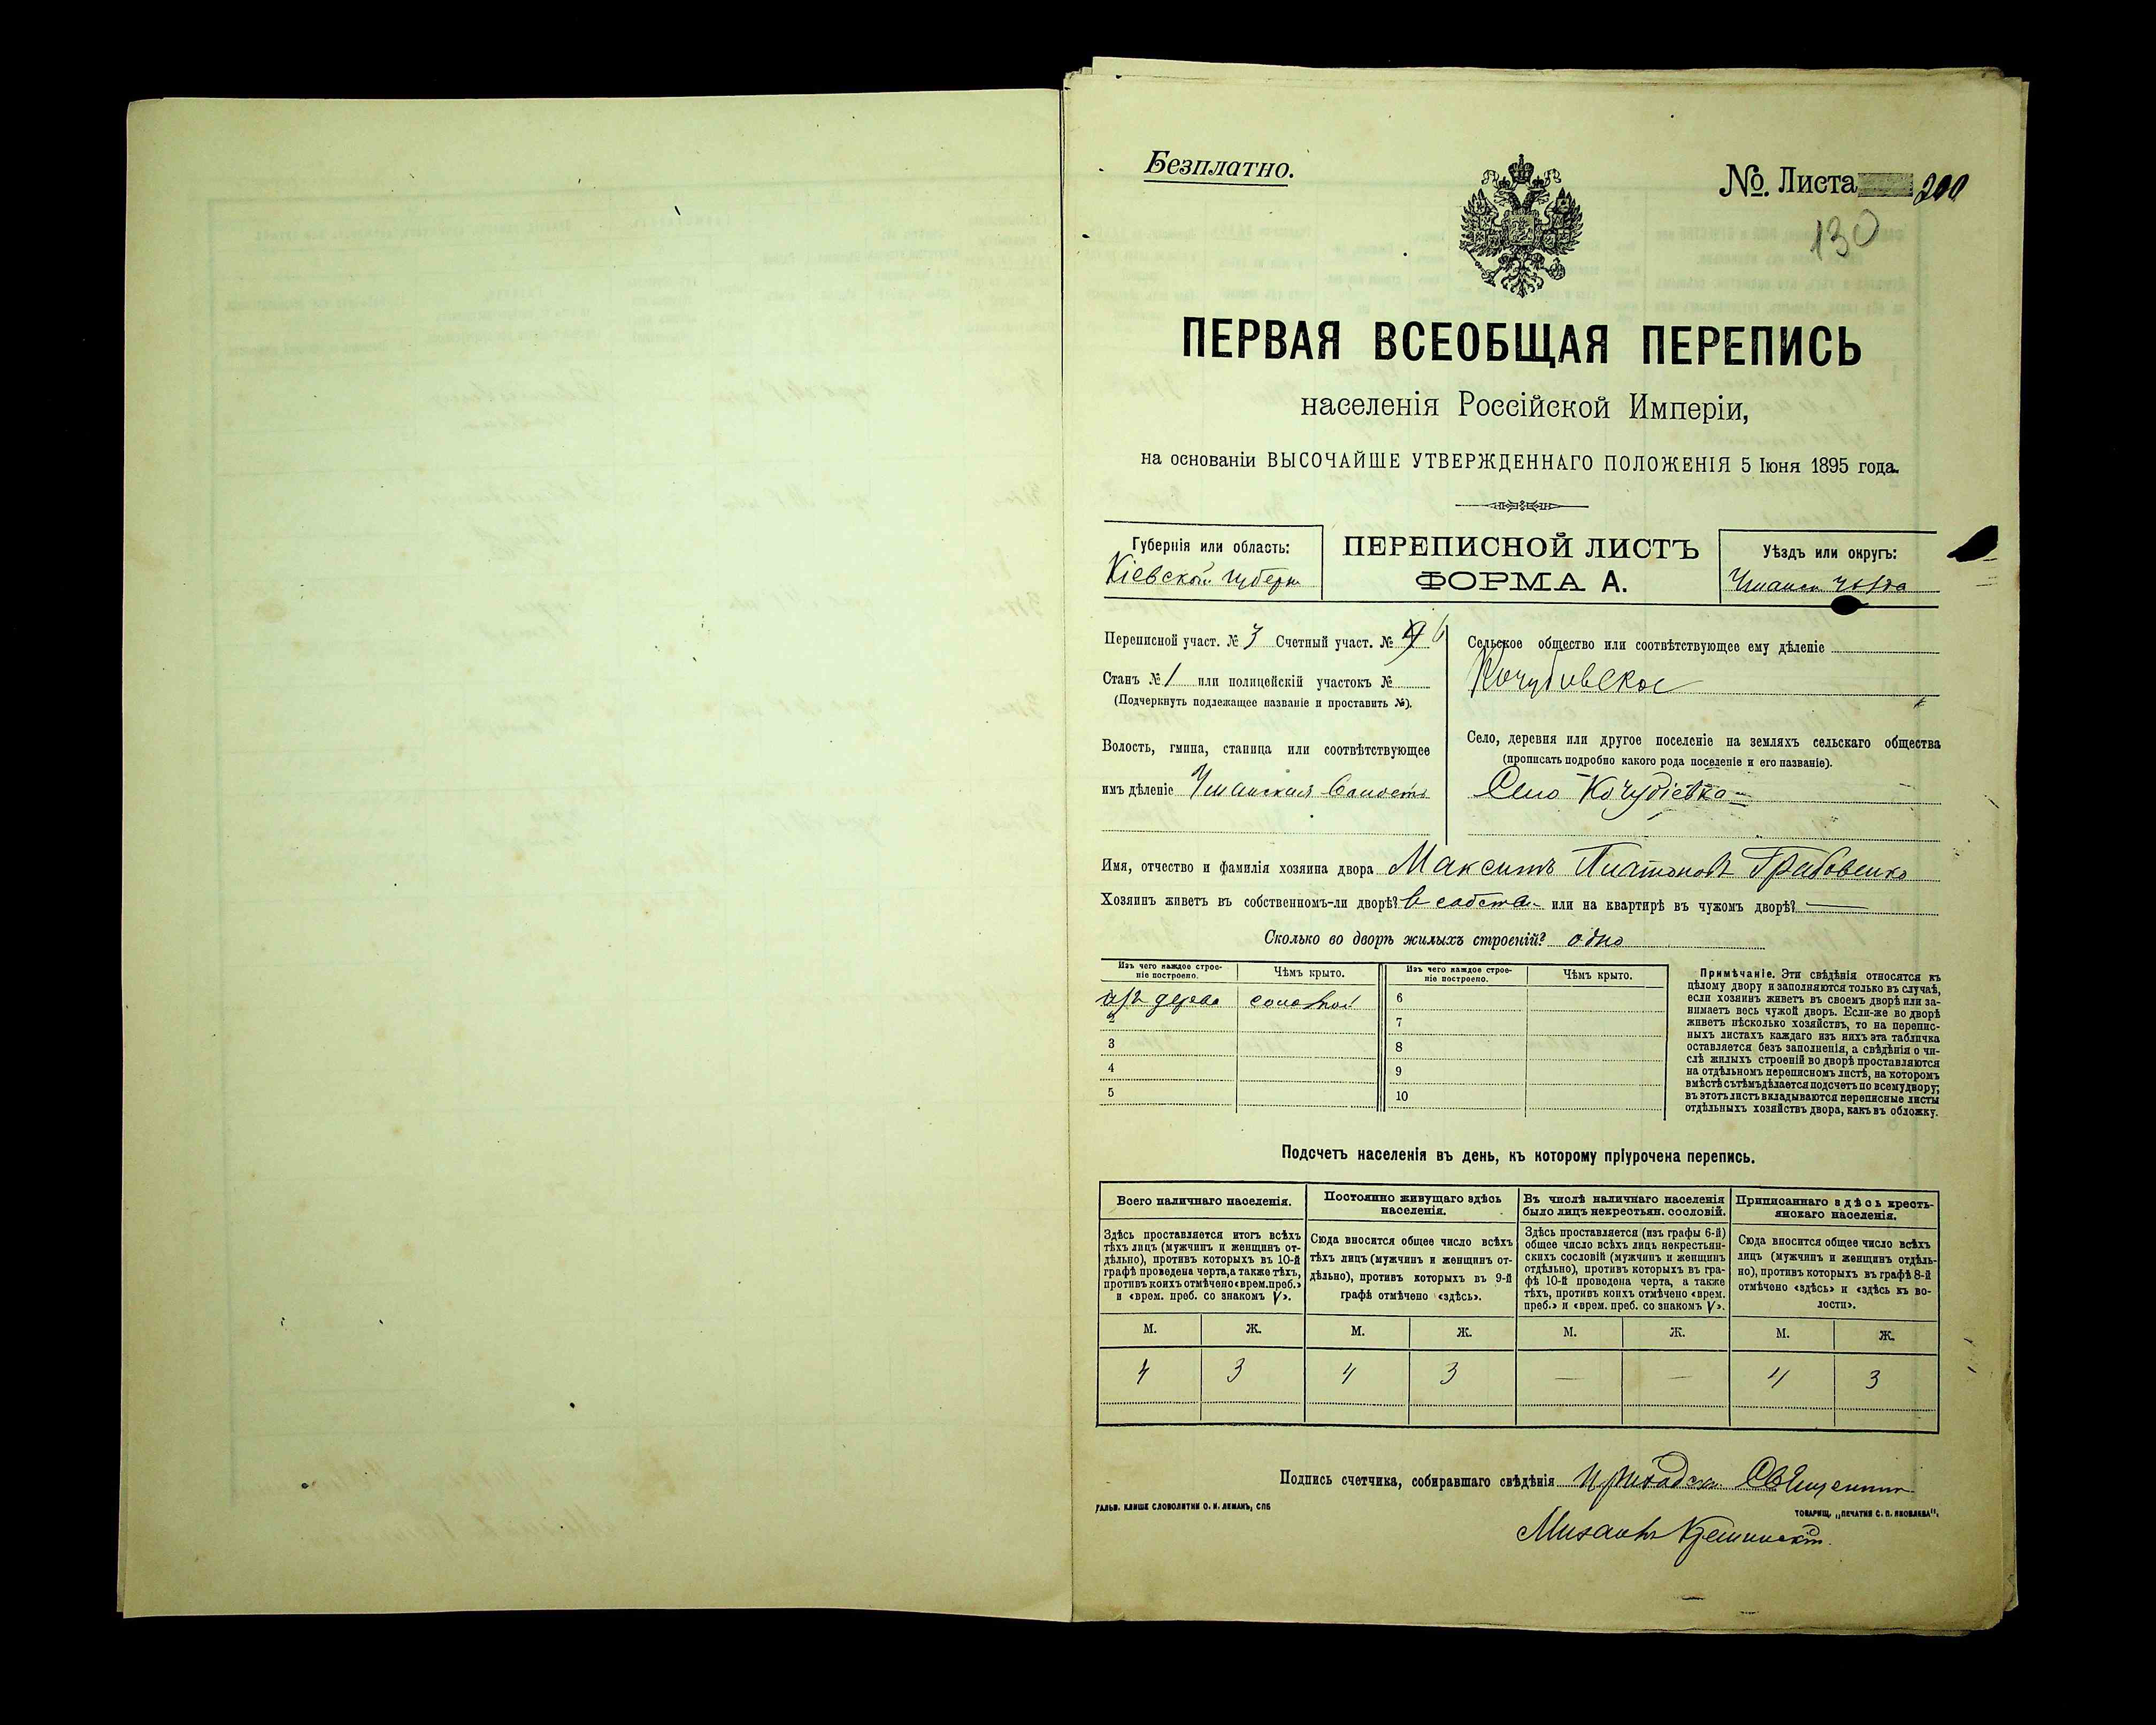 Безплатно.
№. Листа 200
130
ПЕРВАЯ ВСЕОБЩАЯ ПЕРЕПИСЬ
населенія Россійской Имперіи,
на основаніи ВЫСОЧАЙШЕ УТВЕРЖДЕННАГО ПОЛОЖЕНІЯ 5 Іюня 1895 года.
Губернія или область:
Кіевской губерн
ПЕРЕПИСНОЙ ЛИСТЪ
ФОРМА А.
Уѣздъ или округъ:
Уманск уѣзда
Переписной участ. № 3 Счетный участ. №
Станъ № 1 или полицейскій участокъ №
(Подчеркнуть подлежащее названіе и проставить №).
Волость, гмина, станица или соотвѣтствующее
имъ дѣленіе Уманская волость
Сельское общество или соотвѣтствующее ему дѣленіе
Кочубіевское
Село, деревня или другое поселеніе на земляхъ сельскаго общества
(прописать подробно какого рода поселеніе и его названіе).
Село Кочубіевка
Имя, отчество и фамилія хозяина двора Максимъ Платоновъ Грабовенко
Хозяинъ живетъ въ собственномъ-ли дворѣ? в собств. или на квартирѣ въ чужомъ дворѣ? —
Сколько во дворѣ жилыхъ строеній? одно
Изъ чего каждое строеніе построено.
Чѣмъ крыто.
Изъ чего каждое строеніе построено.
Чѣмъ крыто.
изъ дерева соломой
2
3
4
5
6
7
8
9
10
Примѣчаніе. Эти свѣдѣнія относятся къ
цѣлому двору и заполняются только въ случаѣ,
если хозяинъ живетъ въ своемъ дворѣ или за-
нимаетъ весь чужой дворъ. Если-же во дворѣ
живетъ нѣсколько хозяйствъ, то на перепис-
ныхъ листахъ каждаго изъ нихъ эта табличка
оставляется безъ заполненія, а свѣдѣнія о чи-
слѣ жилыхъ строеній во дворѣ проставляются
на отдѣльномъ переписномъ листѣ, на которомъ
вмѣстѣ съ тѣмъ дѣлается подсчетъ по всему двору;
въ этотъ листъ вкладываются переписные листы
отдѣльныхъ хозяйствъ двора, какъ въ обложку.
Подсчетъ населенія въ день, къ которому пріурочена перепись.
Всего наличнаго населенія.
Здѣсь проставляется итогъ всѣхъ
тѣхъ лицъ (мужчинъ и женщинъ от-
дѣльно), противъ которыхъ въ 10-й
графѣ проведена черта, а также тѣхъ,
противъ коихъ отмѣчено «врем. преб.»
и «врем. преб. со знакомъ V».
Постоянно живущаго здѣсь
населенія.
Сюда вносится общее число всѣхъ
тѣхъ лицъ (мужчинъ и женщинъ от-
дѣльно), противъ которыхъ въ 9-й
графѣ отмѣчено «здѣсь».
Въ числѣ наличнаго населенія
было лицъ некрестьян. сословій.
Здѣсь проставляется (изъ графы 6-й)
общее число всѣхъ лицъ некрестьян-
скихъ сословій (мужчинъ и женщинъ
отдѣльно), противъ которыхъ въ гра-
фѣ 10-й проведена черта, а также
тѣхъ, противъ коихъ отмѣчено «врем.
преб.» и «врем. преб. со знакомъ V».
Приписаннаго здѣсь кресть-
янскаго населенія.
Сюда вносится общее число всѣхъ
лицъ (мужчинъ и женщинъ отдѣль-
но), противъ которыхъ въ графѣ 8-й
отмѣчено «здѣсь» и «здѣсь къ во-
лости».
М. Ж. М. Ж. М. Ж. М. Ж.
4 3 4 3 — — 4 3
Подпись счетчика, собиравшаго свѣдѣнія приходск. Священник
Михаилъ
ГАЛЬВ. КЛИШЕ СЛОВОЛИТНИ О. И. ЛЕМАНЪ, СПБ
ТОВАРИЩ. „ПЕЧАТНЯ С. П. ЯКОВЛЕВА".